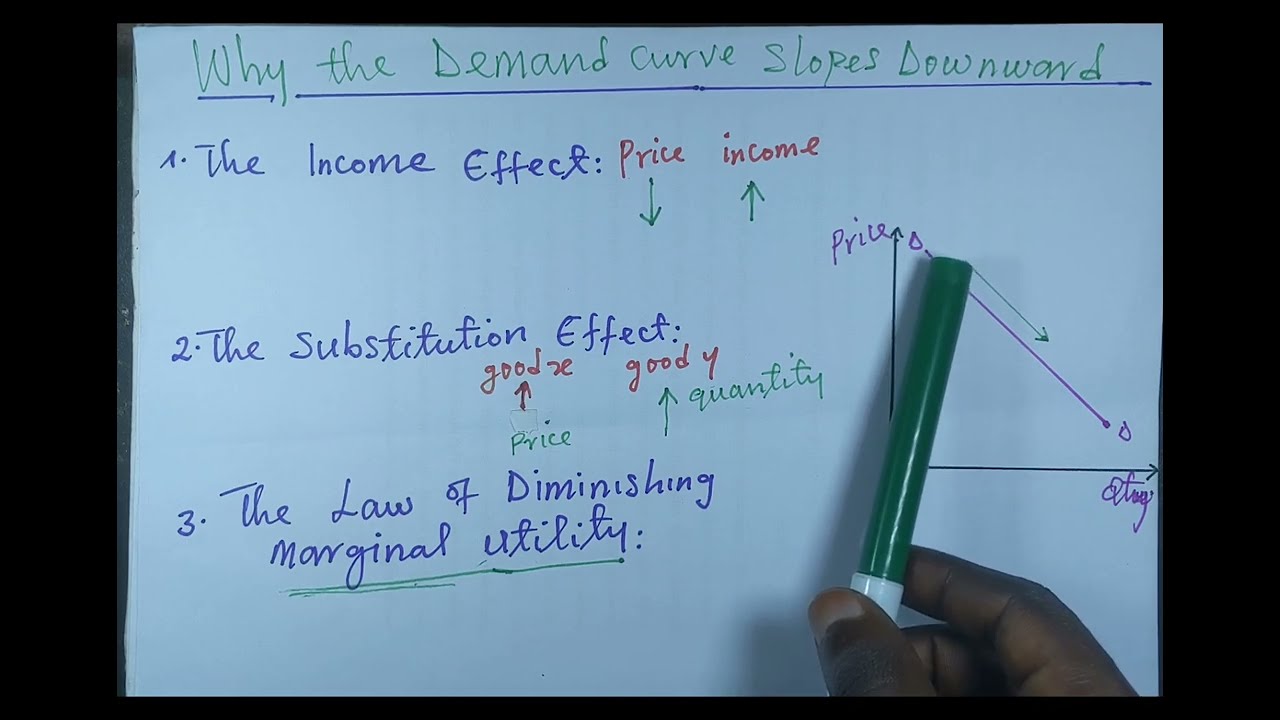 Why the Demand curve Slopes Downward
1. The Income Effect: Price income
Price D
2. The Substitution Effect:
good x good y
quantity
Price
D
3. The Law of Diminishing
marginal utility: